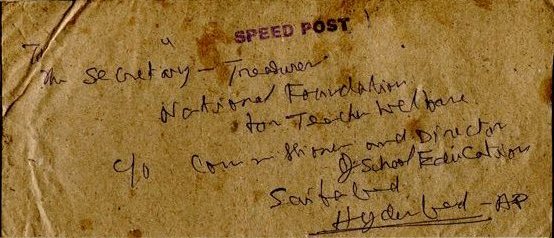 SPEED POST
To
The Secretary - Treasurer
National Foundation
for Teacher Welfare
c/o Commissioner and Director
of School Education
Saifabad
Hyderabad - AP